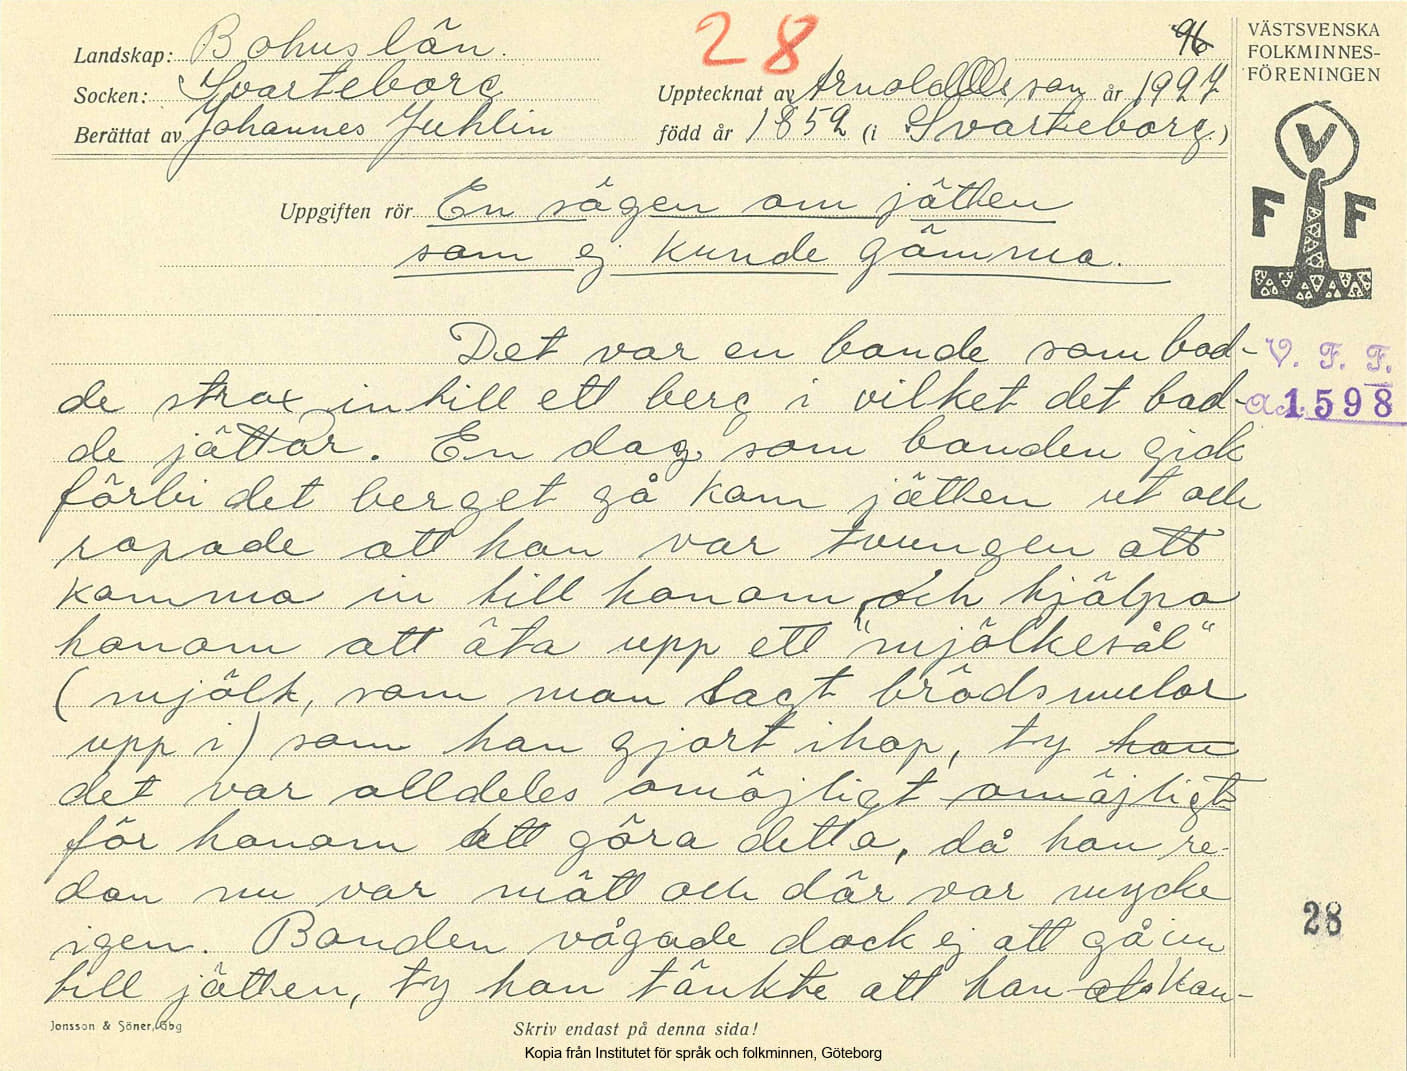 28
96
VÄSTSVENSKA
FOLKMINNES-
FÖRENINGEN
Landskap: Bohuslän.
Socken: Svarteborg
Upptecknat av Arnold Olsson år 1927
Berättat av Johannes Juhlin
född år 1852 (i Svarteborg.)
V
F F
Uppgiften rör En sägen om jätten
som ej kunde gömma.
Det var en bonde som bod-
V. F. F.
de strax intill ett berg i vilket det bod-
1598
de jättar. En dag, som bonden gick
förbi det berget gå kom jätten ut och
ropade att han var tvungen att
komma in till honom, och hjälpa
honom att äta upp ett "mjölkesål"
(mjölk, som man lagt brödsmulor
upp i) som han gjort ihop, ty han
det var alldeles omöjligt omöjligt
för honom att göra detta, då han re-
dan nu var mätt och där var mycke
igen. Bonden vågade dock ej att gå in
28
till jätten, ty han tänkte att han kan-
Jonsson & Söner, Gbg
Skriv endast på denna sida!
Kopia från Institutet för språk och folkminnen, Göteborg